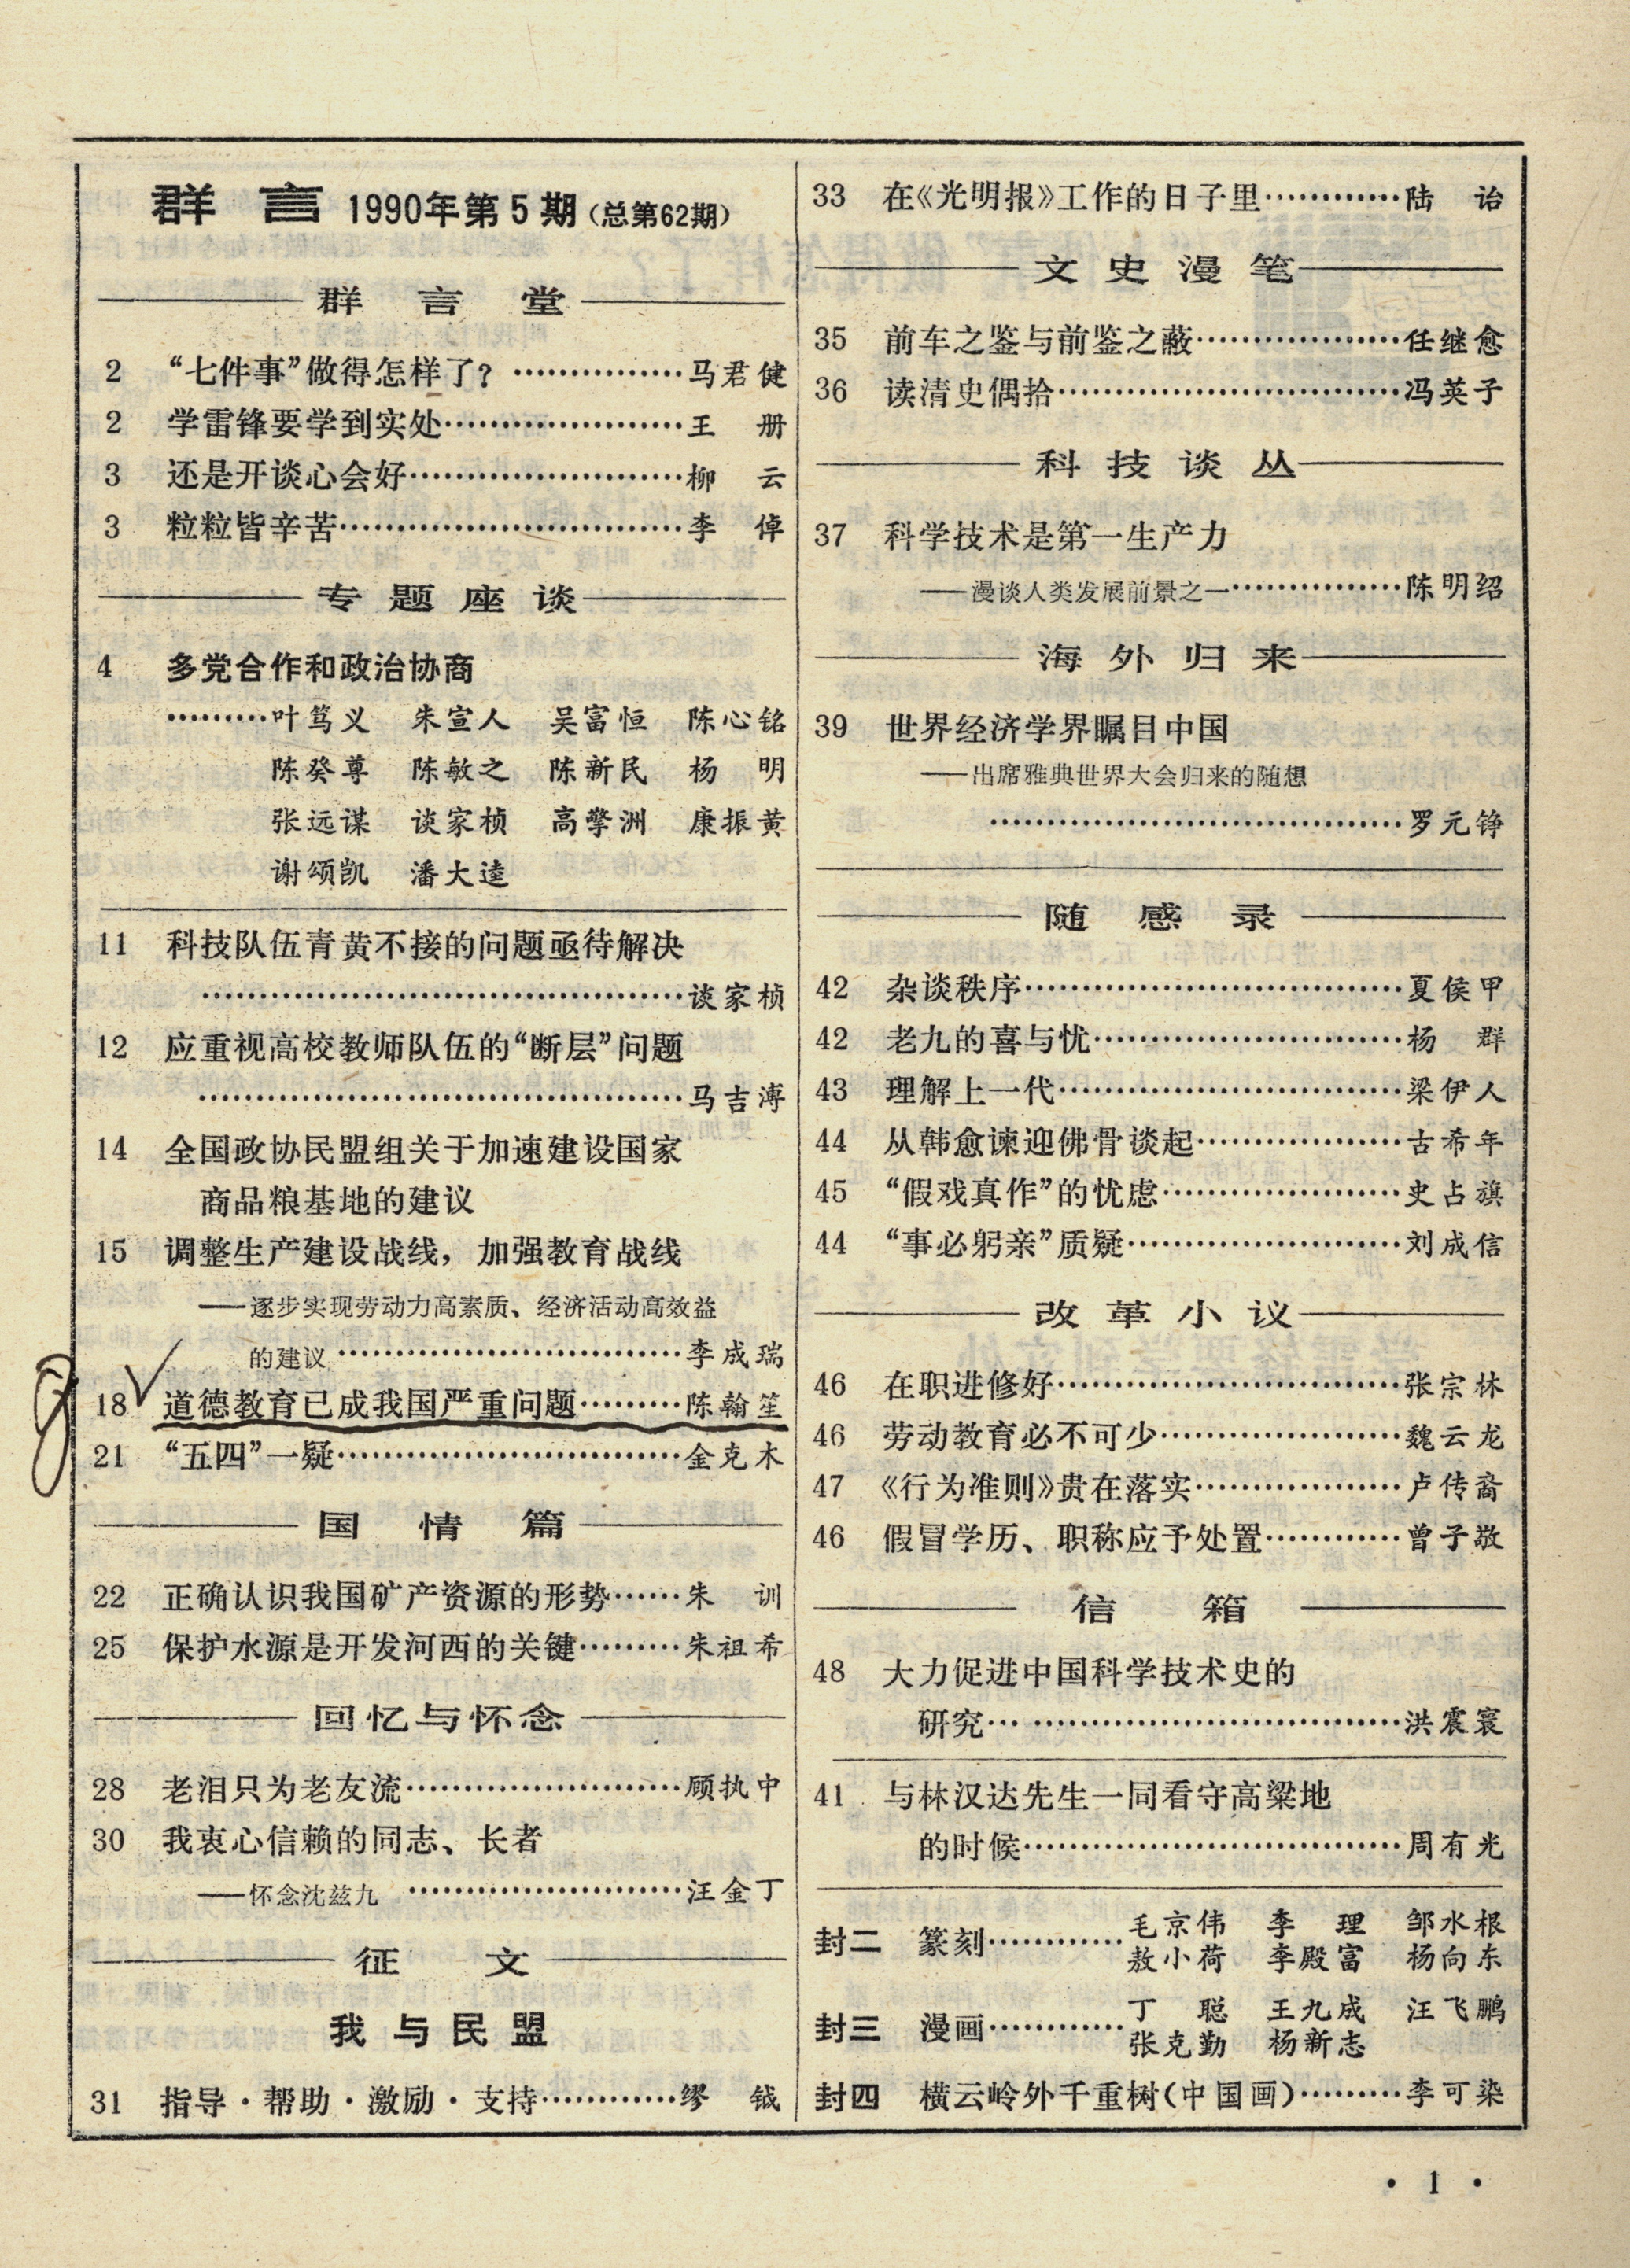 群言 1990年第5期（总第62期）
群言堂
2 “七件事”做得怎样了？……………马君健
2 学雷锋要学到实处…………………王 册
3 还是开谈心会好……………………柳 云
3 粒粒皆辛苦…………………………李 倬
专题座谈
4 多党合作和政治协商
………叶笃义 朱宣人 吴富恒 陈心铭
陈癸尊 陈敏之 陈新民 杨 明
张远谋 谈家桢 高擎洲 康振黄
谢颂凯 潘大逵
11 科技队伍青黄不接的问题亟待解决
……………………………………谈家桢
12 应重视高校教师队伍的“断层”问题
……………………………………马吉溥
14 全国政协民盟组关于加速建设国家
商品粮基地的建议
15 调整生产建设战线，加强教育战线
——逐步实现劳动力高素质、经济活动高效益
的建议…………………………李成瑞
18 道德教育已成我国严重问题………陈翰笙
21 “五四”一疑…………………………金克木
国情篇
22 正确认识我国矿产资源的形势……朱 训
25 保护水源是开发河西的关键………朱祖希
回忆与怀念
28 老泪只为老友流……………………顾执中
30 我衷心信赖的同志、长者
——怀念沈兹九……………………汪金丁
征文
我与民盟
31 指导·帮助·激励·支持…………缪 钺
33 在《光明报》工作的日子里…………陆 诒
文史漫笔
35 前车之鉴与前鉴之蔽………………任继愈
36 读清史偶拾…………………………冯英子
科技谈丛
37 科学技术是第一生产力
——漫谈人类发展前景之一……………陈明绍
海外归来
39 世界经济学界瞩目中国
——出席雅典世界大会归来的随想
………………………………罗元铮
随感录
42 杂谈秩序……………………………夏侯甲
42 老九的喜与忧………………………杨 群
43 理解上一代…………………………梁伊人
44 从韩愈谏迎佛骨谈起………………古希年
45 “假戏真作”的忧虑…………………史占旗
44 “事必躬亲”质疑……………………刘成信
改革小议
46 在职进修好…………………………张宗林
46 劳动教育必不可少…………………魏云龙
47 《行为准则》贵在落实………………卢传裔
46 假冒学历、职称应予处置…………曾子敬
信箱
48 大力促进中国科学技术史的
研究… …………………………洪震寰
41 与林汉达先生一同看守高粱地
的时候……………………………周有光
封二 篆刻…………毛京伟 李 理 邹水根
敖小荷 李殿富 杨向东
封三 漫画…………丁 聪 王九成 汪飞鹏
张克勤 杨新志
封四 横云岭外千重树（中国画）………李可染
·1·